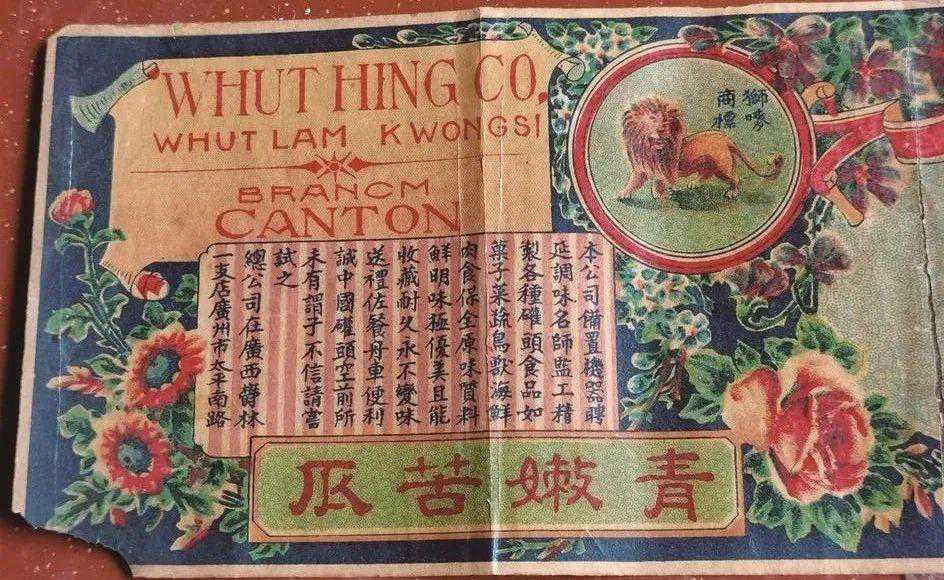 WHUT HING CO,
WHUT LAM KWONGSI
BRANCM
CANTON
獅嘜
商標
本公司備置機器聘
延調味名師監工精
製各種礶頭食品如
菓子菜蔬鳥獸海鮮
肉食保全原味質料
鮮明味極優美且能
收藏耐久永不變味
送禮佐餐舟車便利
誠中國礶頭空前所
未有謂子不信請嘗
試之
總公司在廣西鬱林
一支店廣州市太平南路
青嫩苦瓜